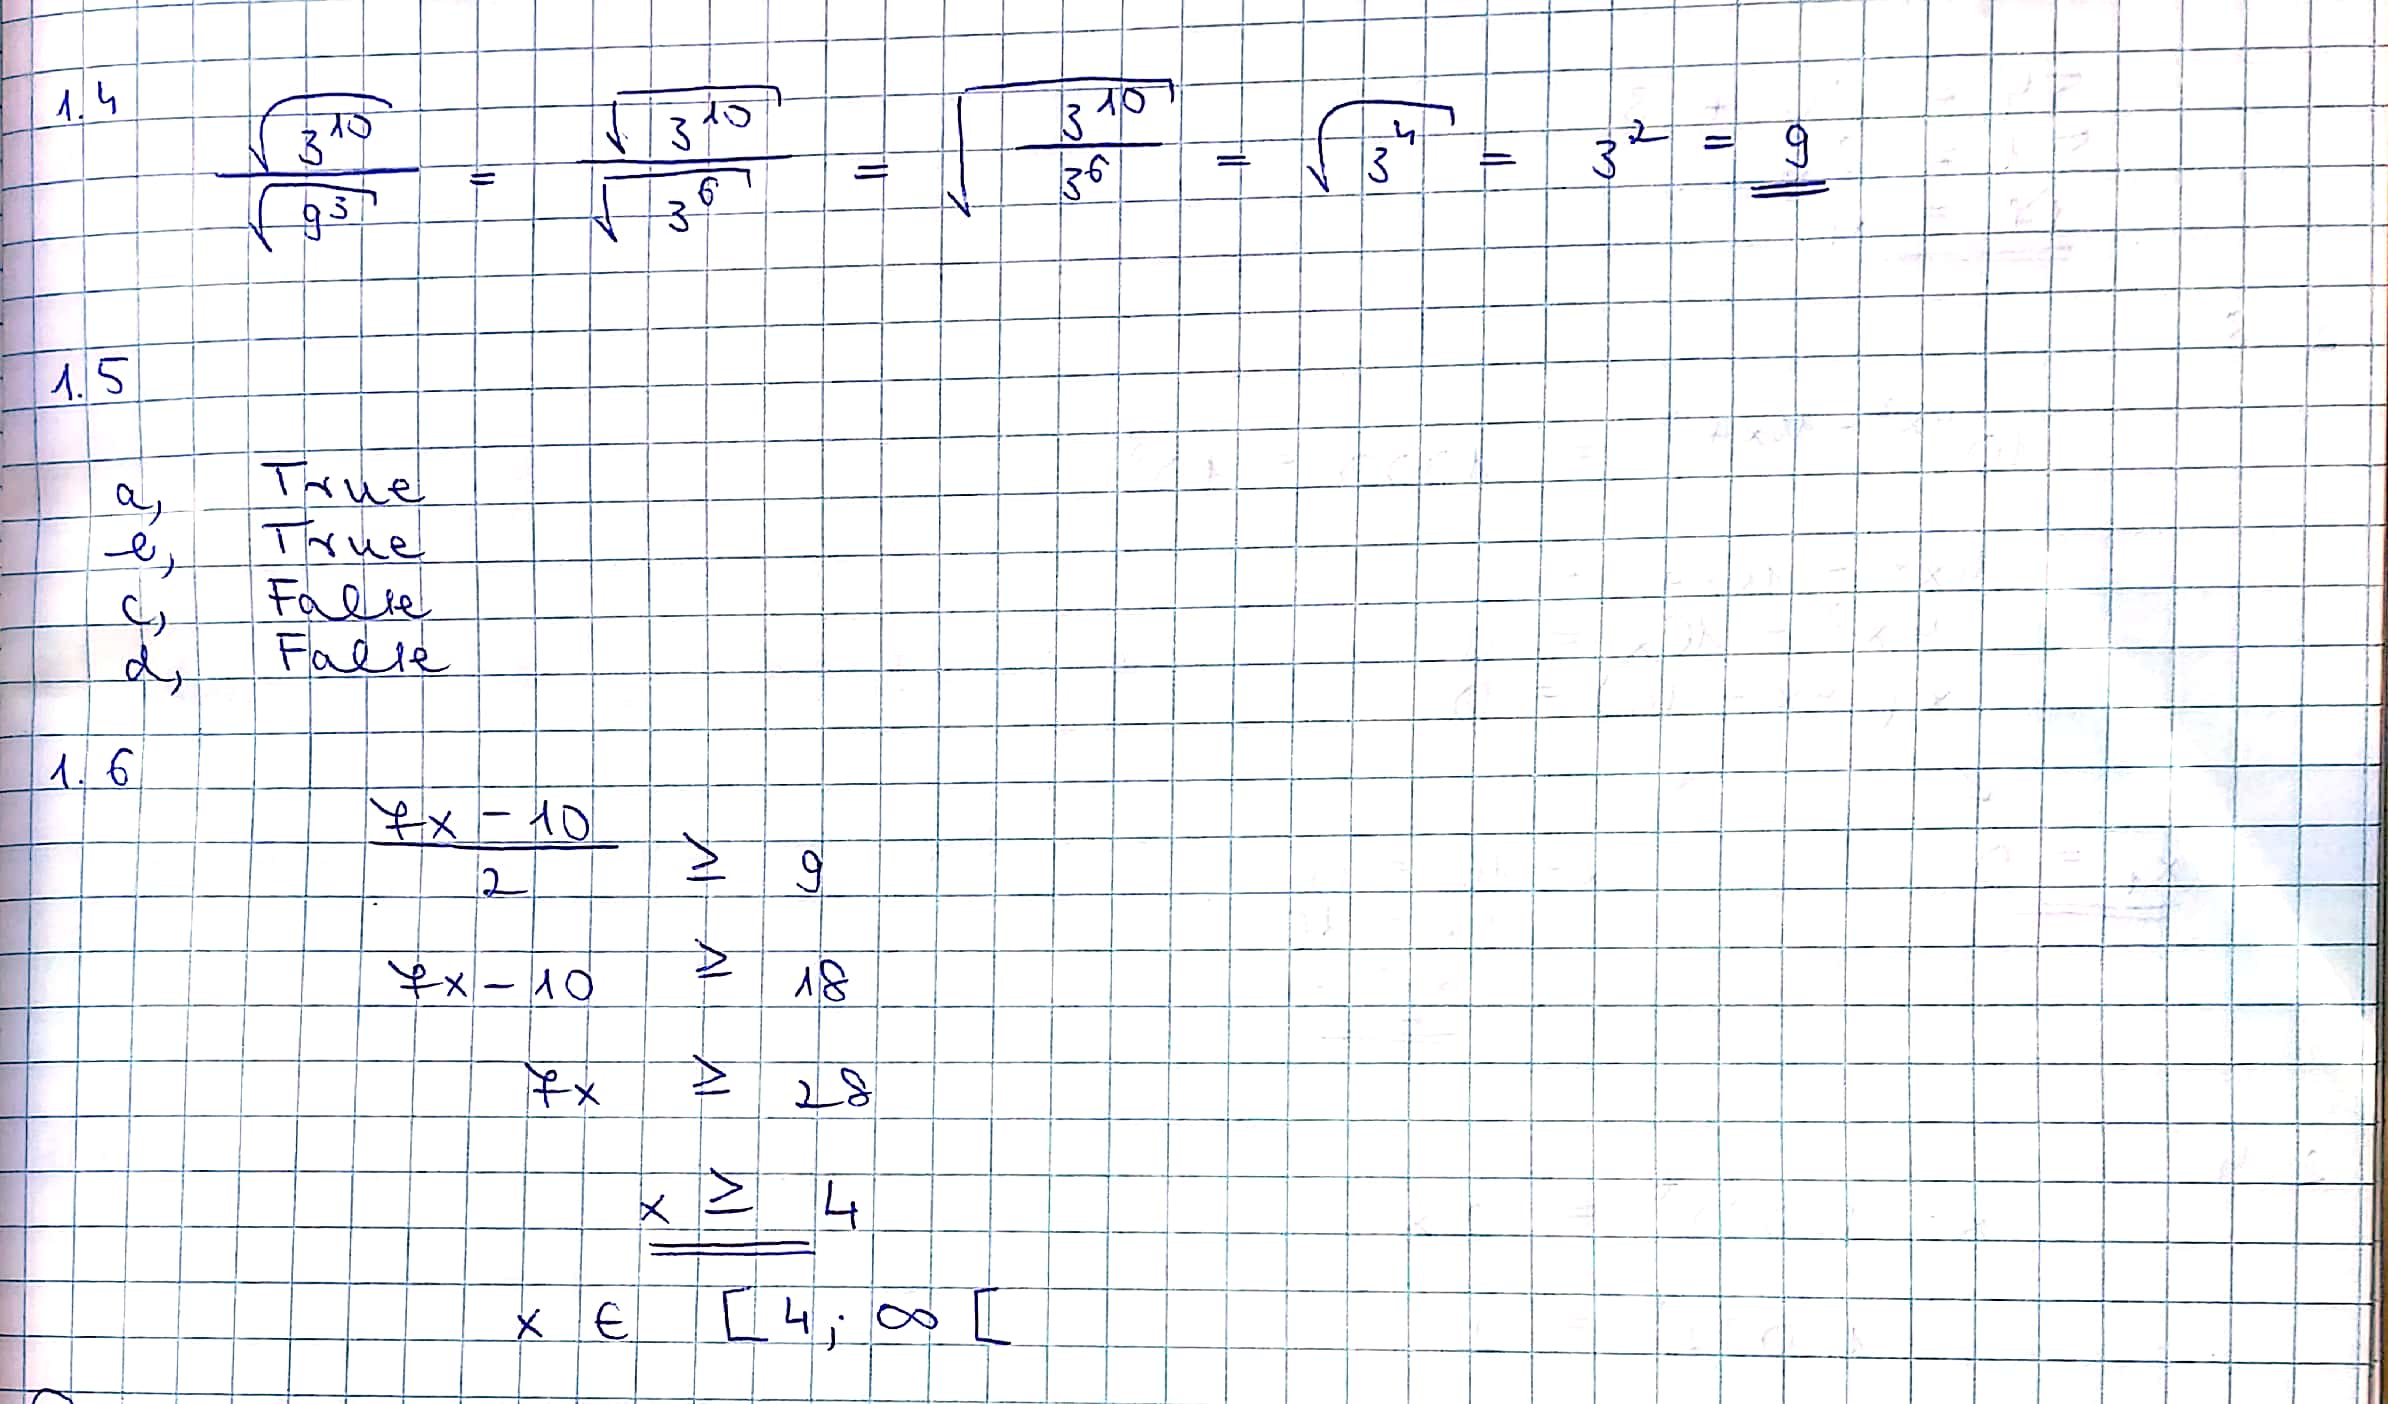 1.4 √(3^10) / √(9^3) = √(3^10) / √(3^6) = √(3^10 / 3^6) = √(3^4) = 3^2 = 9
1.5
a, True
b, True
c, False
d, False
1.6
(7x - 10) / 2 ≥ 9
7x - 10 ≥ 18
7x ≥ 28
x ≥ 4
x ∈ [ 4 ; ∞ [